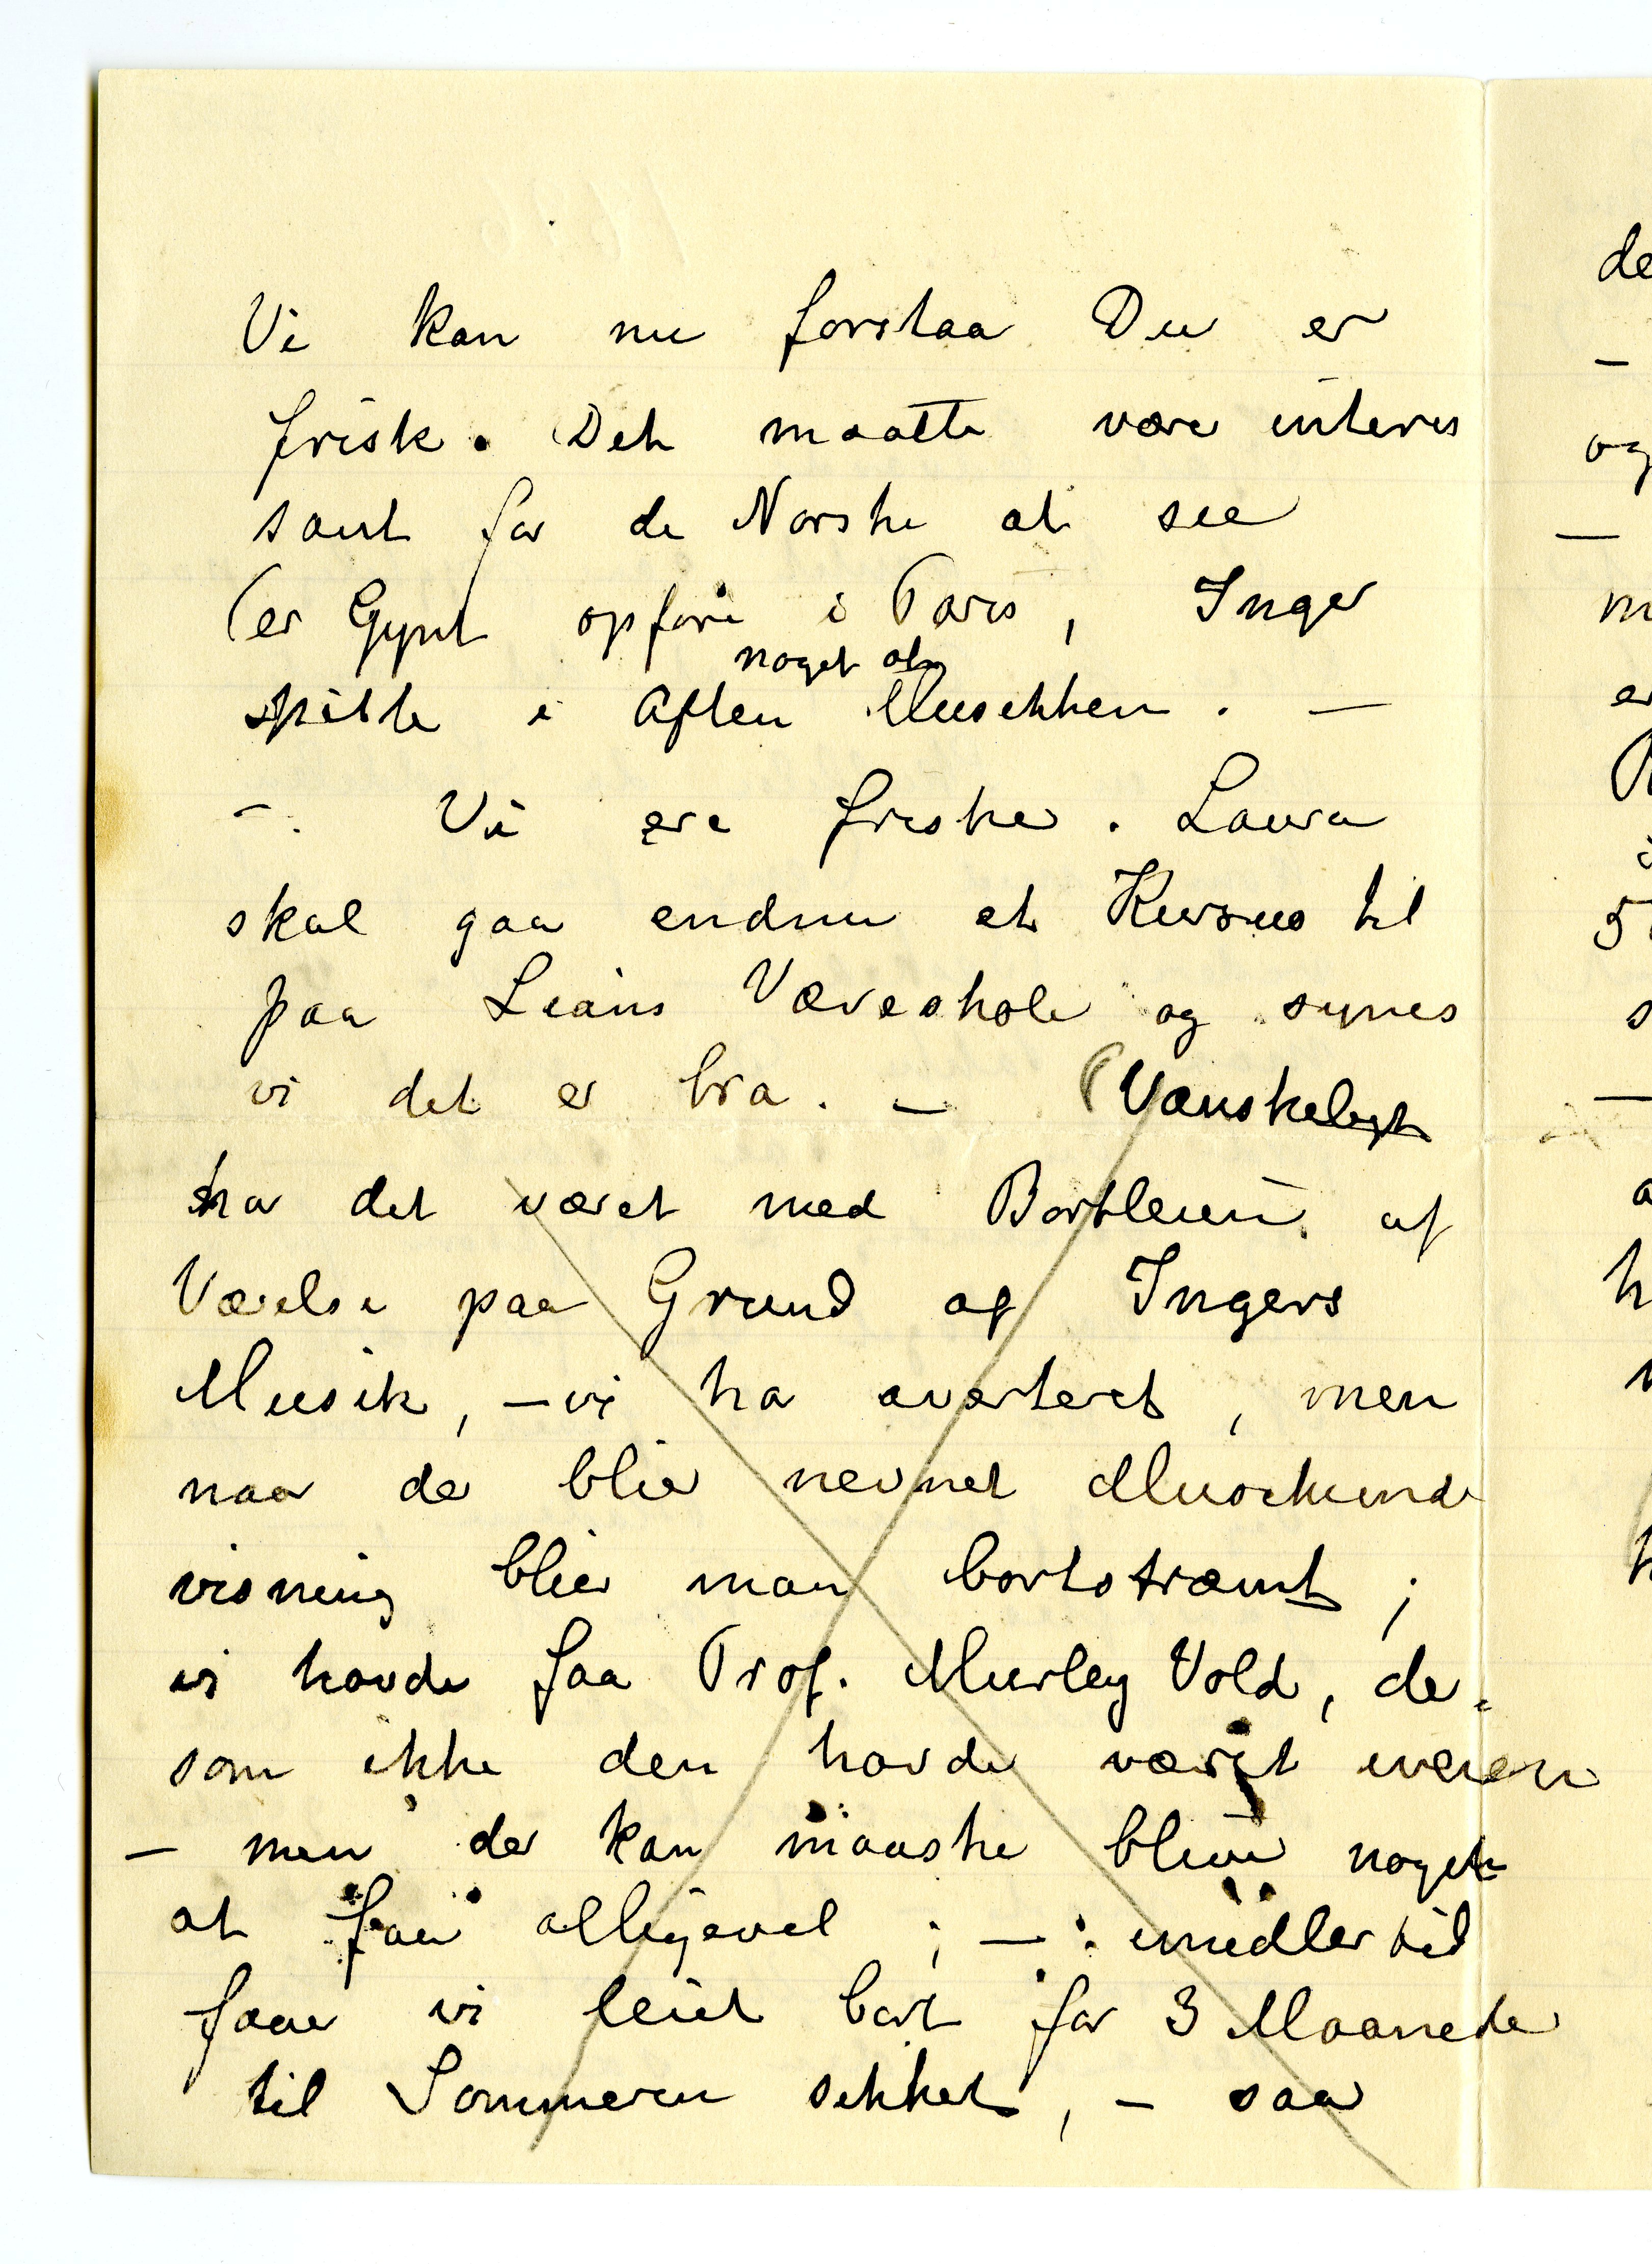 Vi kan nu forstaa Du er
frisk. Det maatte være interes
sant for de Norske at see
Per Gynt opføre i Paris, Inger
noget af
spilte i Aften Musikken. —
—. Vi ere friske. Laura
skal gaa endnu et Kursus til
paa Leäns Væveskole og synes
vi det er bra. — (Vanskeligt
har det været med Bortleie af
Værelse paa Grund af Ingers
Musik, — vi ha averteret, men
naar der blir nevnet Musikunder
visning blir man bortskræmt;
vi havde faa Prof. Murley Vold, der
som ikke den havde været iveien
— men der kan maaske blive noget
at faa alligevel; — imidlertid
faar vi leiet bort for 3 Maaneder
til Sommeren sikkert, — saa
de
—
og
—
m
er
5
s
—
a
h